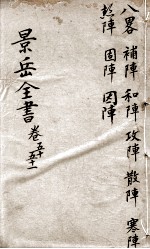 八略 補陣 和陣 攻陣 散陣 寒陣
熱陣 固陣 因陣
景岳全書 卷五十